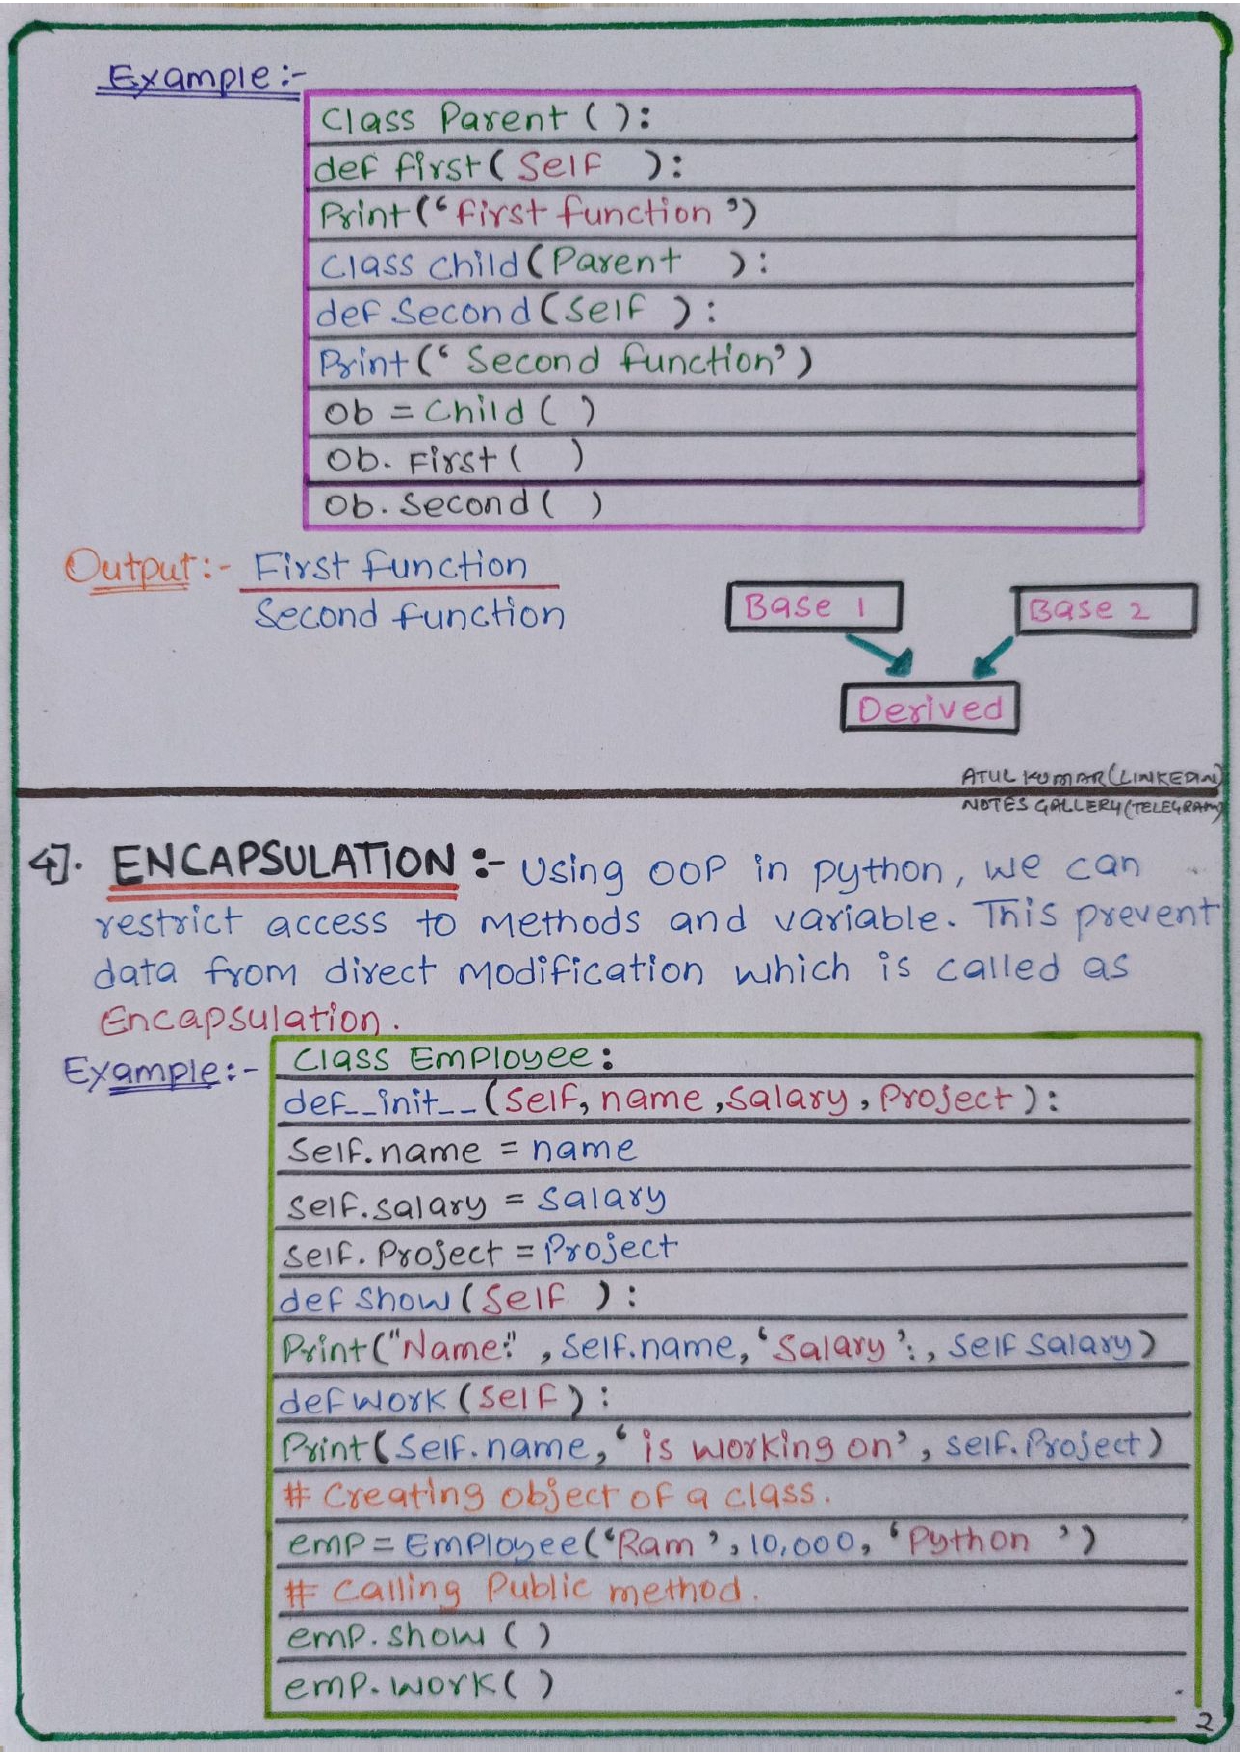 Example:-
Class Parent ( ):
def first( Self ):
Print(‘first function’)
Class child(Parent ):
def Second(Self ):
Print(‘ Second function’)
Ob = Child ( )
Ob. First ( )
Ob. Second ( )
Output:- First function
Second function
Base 1 Base 2
Derived
ATUL KUMAR (LINKEDIN)
NOTES GALLERY (TELEGRAM)
4]. ENCAPSULATION :- Using OOP in python, we can
restrict access to methods and variable. This prevent
data from direct modification which is called as
Encapsulation.
Example:-
Class Employee:
def__init__(Self, name ,Salary, Project ):
Self.name = name
Self.salary = Salary
Self. Project = Project
def Show (Self ):
Print("Name:" , Self.name, ‘Salary’:, Self Salary)
def work (Self ):
Print( Self.name, ‘ is working on’, self.Project)
# Creating object of a class.
emp = Employee(‘Ram ’, 10,000, ‘Python ’)
# Calling Public method.
emp. show ( )
emp. work ( )
2